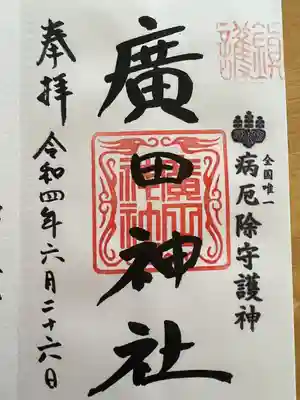 鎮護
全国唯一
病厄除守護神
廣田神社
奉拝
令和四年六月二十六日